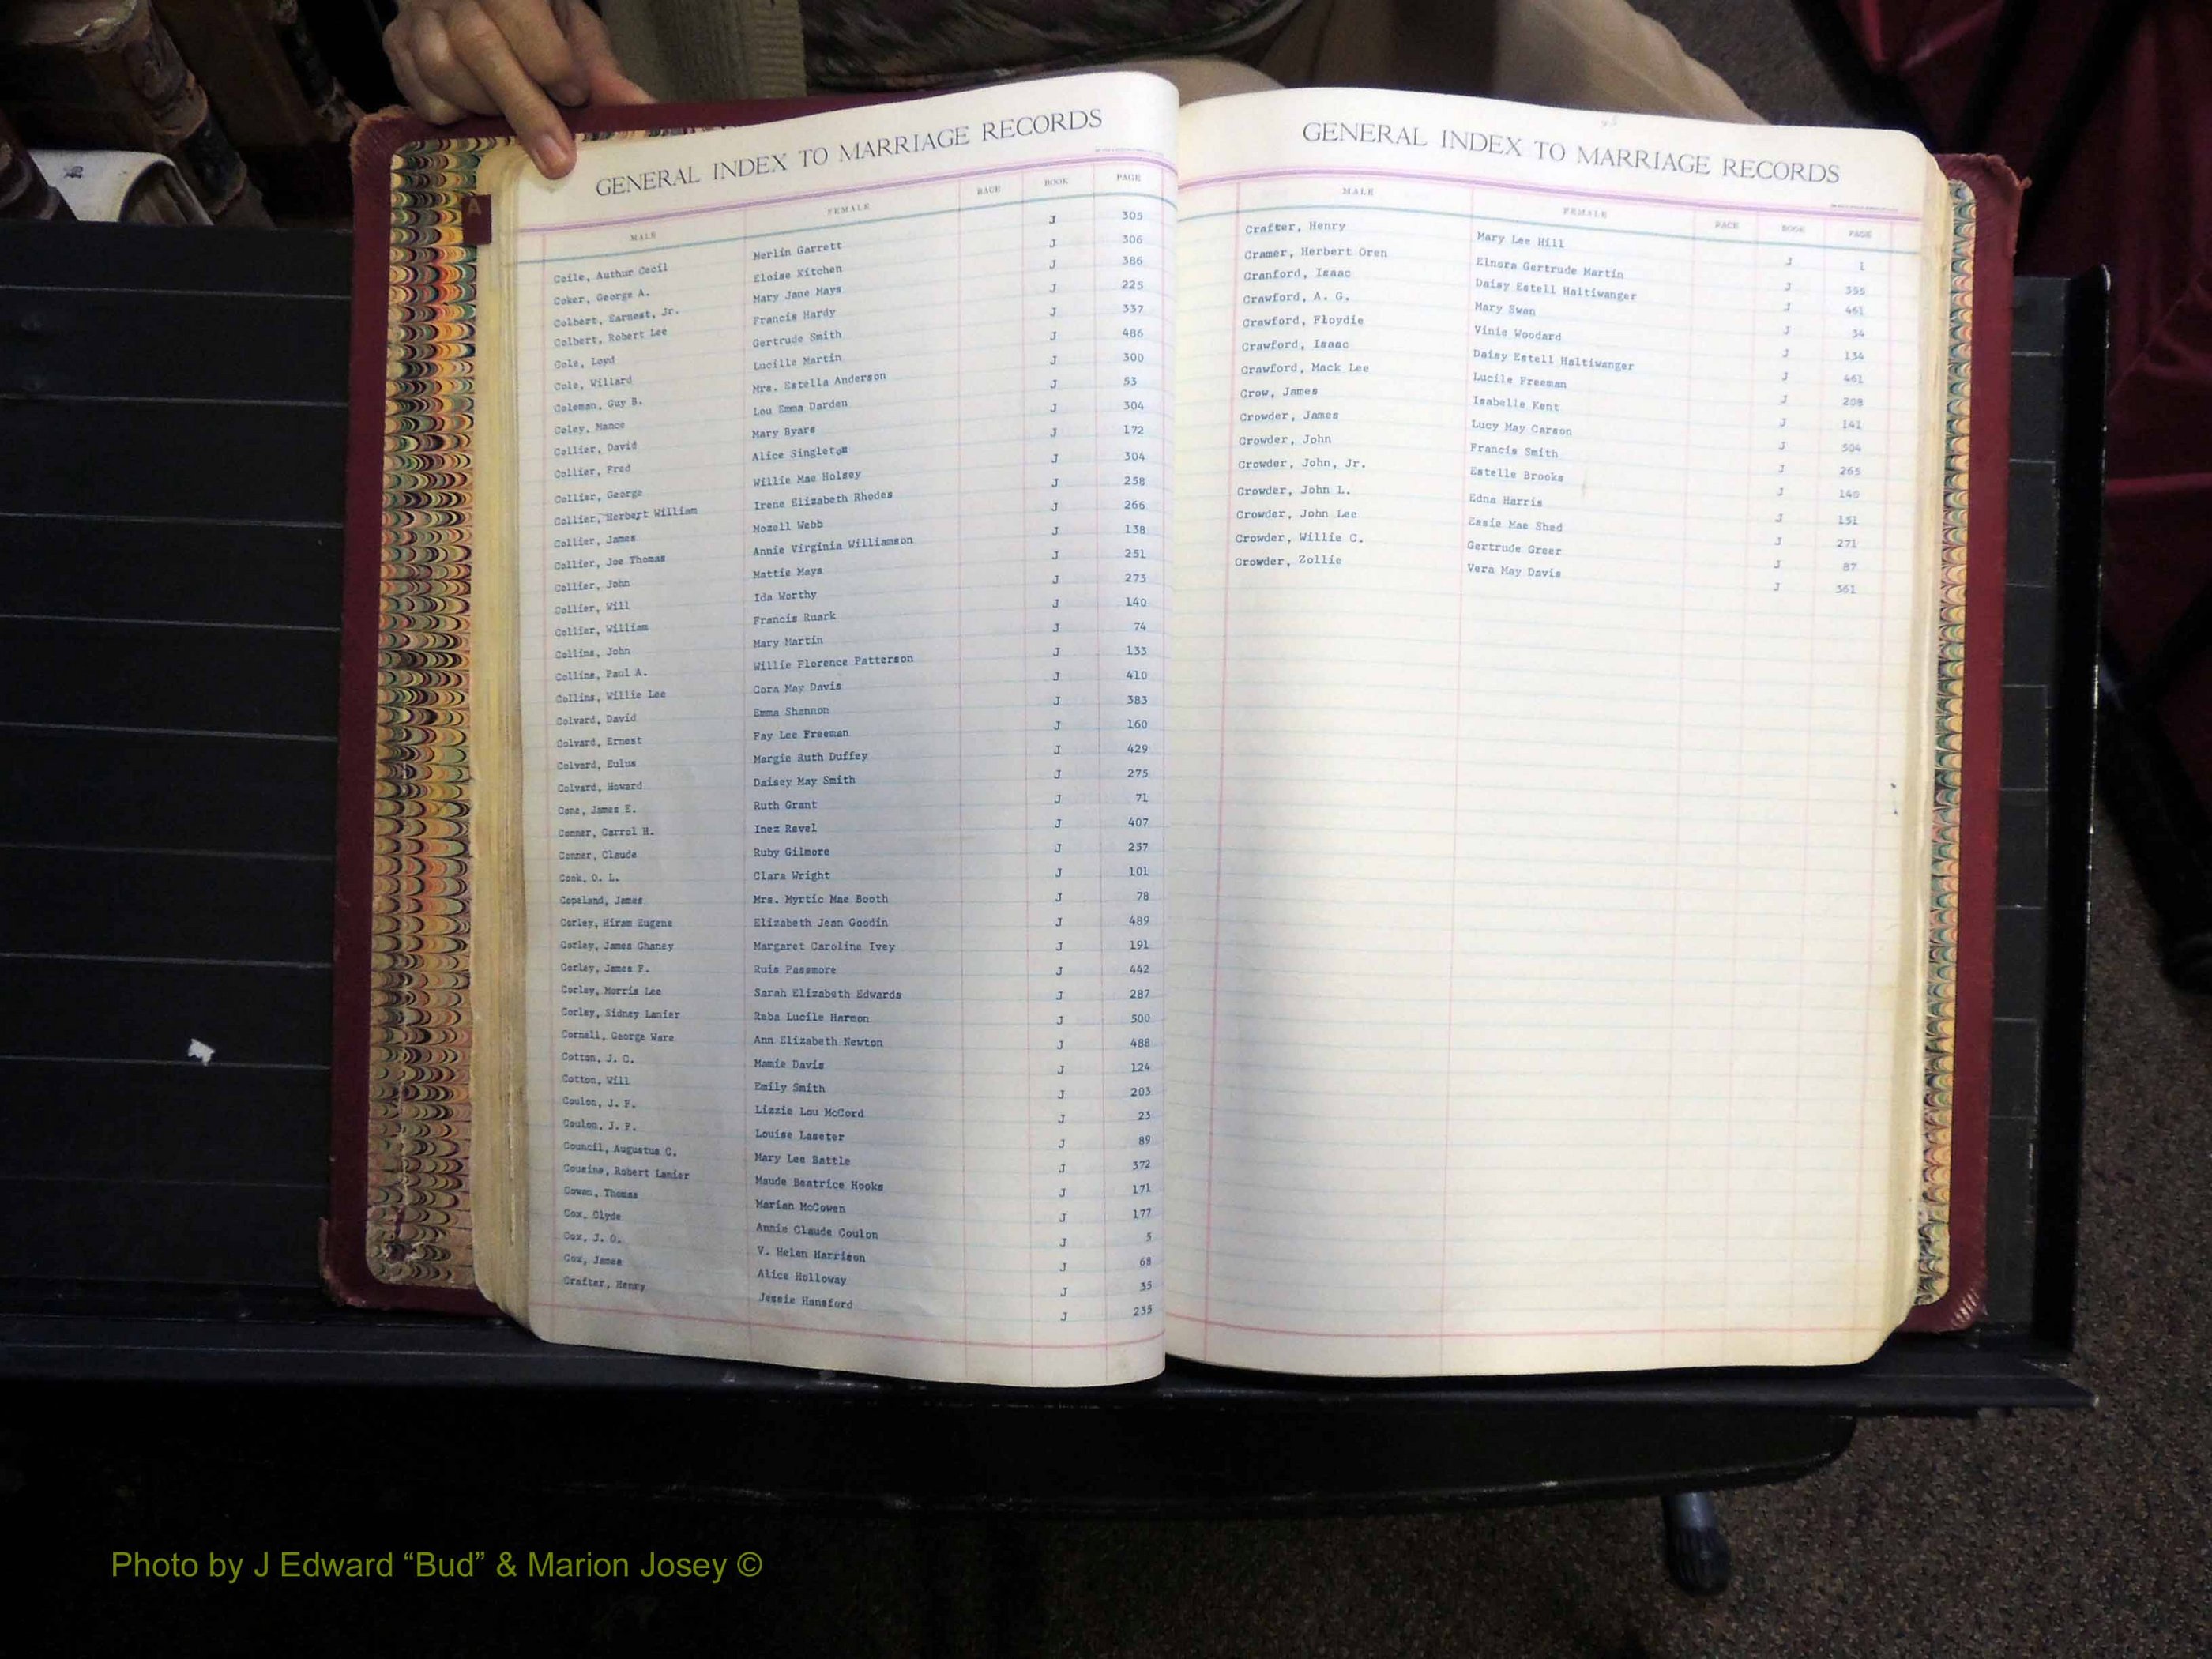 GENERAL INDEX TO MARRIAGE RECORDS
MALE FEMALE RACE BOOK PAGE
Coile, Authur Cecil Merlin Garrett J 305
Coker, George A. Eloise Kitchen J 306
Colbert, Earnest, Jr. Mary Jane Mays J 386
Colbert, Robert Lee Francis Hardy J 225
Cole, Loyd Gertrude Smith J 337
Cole, Willard Lucille Martin J 486
Coleman, Guy B. Mrs. Estella Anderson J 300
Coley, Nance Lou Emma Darden J 53
Collier, David Mary Byars J 304
Collier, Fred Alice Singleton J 172
Collier, George Willie Mae Holsey J 304
Collier, Herbert William Irene Elizabeth Rhodes J 258
Collier, James Mozell Webb J 266
Collier, Joe Thomas Annie Virginia Williamson J 138
Collier, John Mattie Mays J 251
Collier, Will Ida Worthy J 273
Collier, William Francis Ruark J 140
Collins, John Mary Martin J 74
Collins, Paul A. Willie Florence Patterson J 133
Collins, Willie Lee Cora May Davis J 410
Colvard, David Emma Shannon J 383
Colvard, Ernest Fay Lee Freeman J 160
Colvard, Eulus Margie Ruth Duffey J 429
Colvard, Howard Daisey May Smith J 275
Cone, James E. Ruth Grant J 71
Conner, Carrol H. Inez Revel J 407
Conner, Claude Ruby Gilmore J 257
Cook, O. L. Clara Wright J 101
Copeland, James Mrs. Myrtic Mae Booth J 78
Corley, Hiram Eugene Elizabeth Jean Goodin J 489
Corley, James Chaney Margaret Caroline Ivey J 191
Corley, James F. Ruis Passmore J 442
Corley, Morris Lee Sarah Elizabeth Edwards J 287
Corley, Sidney Lanier Reba Lucile Harmon J 500
Cornell, George Ware Ann Elizabeth Newton J 488
Cotton, J. C. Mamie Davis J 124
Cotton, Will Emily Smith J 203
Coulon, J. F. Lizzie Lou McCord J 23
Coulon, J. F. Louise Laseter J 89
Council, Augustus C. Mary Lee Battle J 372
Cousins, Robert Lanier Maude Beatrice Hooks J 171
Cowan, Thomas Marian McCowen J 177
Cox, Clyde Annie Claude Coulon J 5
Cox, J. O. V. Helen Harrison J 68
Cox, James Alice Holloway J 35
Crafter, Henry Jessie Hansford J 235
GENERAL INDEX TO MARRIAGE RECORDS
MALE FEMALE RACE BOOK PAGE
Crafter, Henry Mary Lee Hill J 1
Cramer, Herbert Oren Elnora Gertrude Martin J 355
Cranford, Isaac Daisy Estell Haltiwanger J 461
Crawford, A. G. Mary Swan J 34
Crawford, Floydie Vinie Woodard J 134
Crawford, Isaac Daisy Estell Haltiwanger J 461
Crawford, Mack Lee Lucile Freeman J 208
Crow, James Isabelle Kent J 141
Crowder, James Lucy May Carson J 504
Crowder, John Francis Smith J 265
Crowder, John, Jr. Estelle Brooks J 140
Crowder, John L. Edna Harris J 151
Crowder, John Lee Essie Mae Shed J 271
Crowder, Willie C. Gertrude Greer J 87
Crowder, Zollie Vera May Davis J 361
A
Photo by J Edward “Bud” & Marion Josey ©